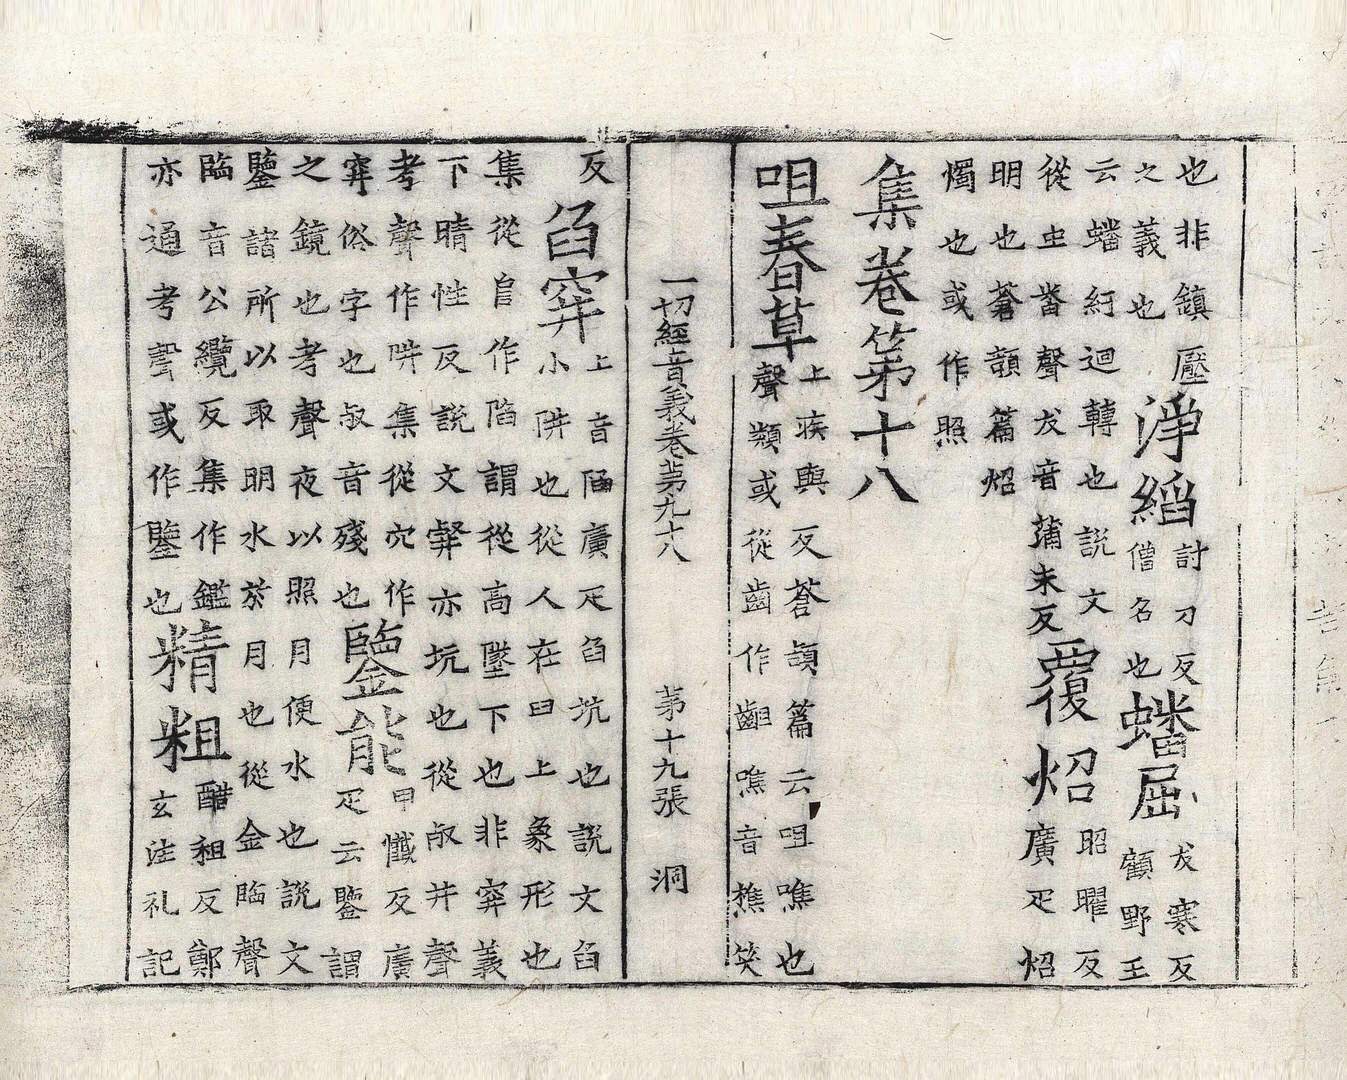 也非鎮壓
之義也
淨縚
討刀反
僧名也
蟠屈
犮寒反
顧野王
云蟠紆迴轉也説文
從虫番聲犮音蒲末反
覆炤
昭曜反
廣疋炤
明也蒼頡篇炤
燭也或作照
集卷第十八
咀春草
上疾與反蒼頡篇云咀噍也
聲類或從齒作齟噍音樵笑
一切經音義卷苐九十八 苐十九張 洞
反
臽穽
上音陷廣疋臽坑也説文臽
小阱也從人在臼上象形也
集從𨸏作陷謂從高墜下也非穽義
下晴性反説文穽亦坑也從㕡井聲
考聲作阱集從穴作
穽俗字也㕡音殘也
鑒能
甲懺反廣
疋云鑒謂
之鏡也考聲夜以照月便水也説文
鑒諸所以取明水於月也從金臨聲
臨音公纜反集作鑑
亦通考聲或作鑒也
精粗
醋租反鄭
玄注礼記